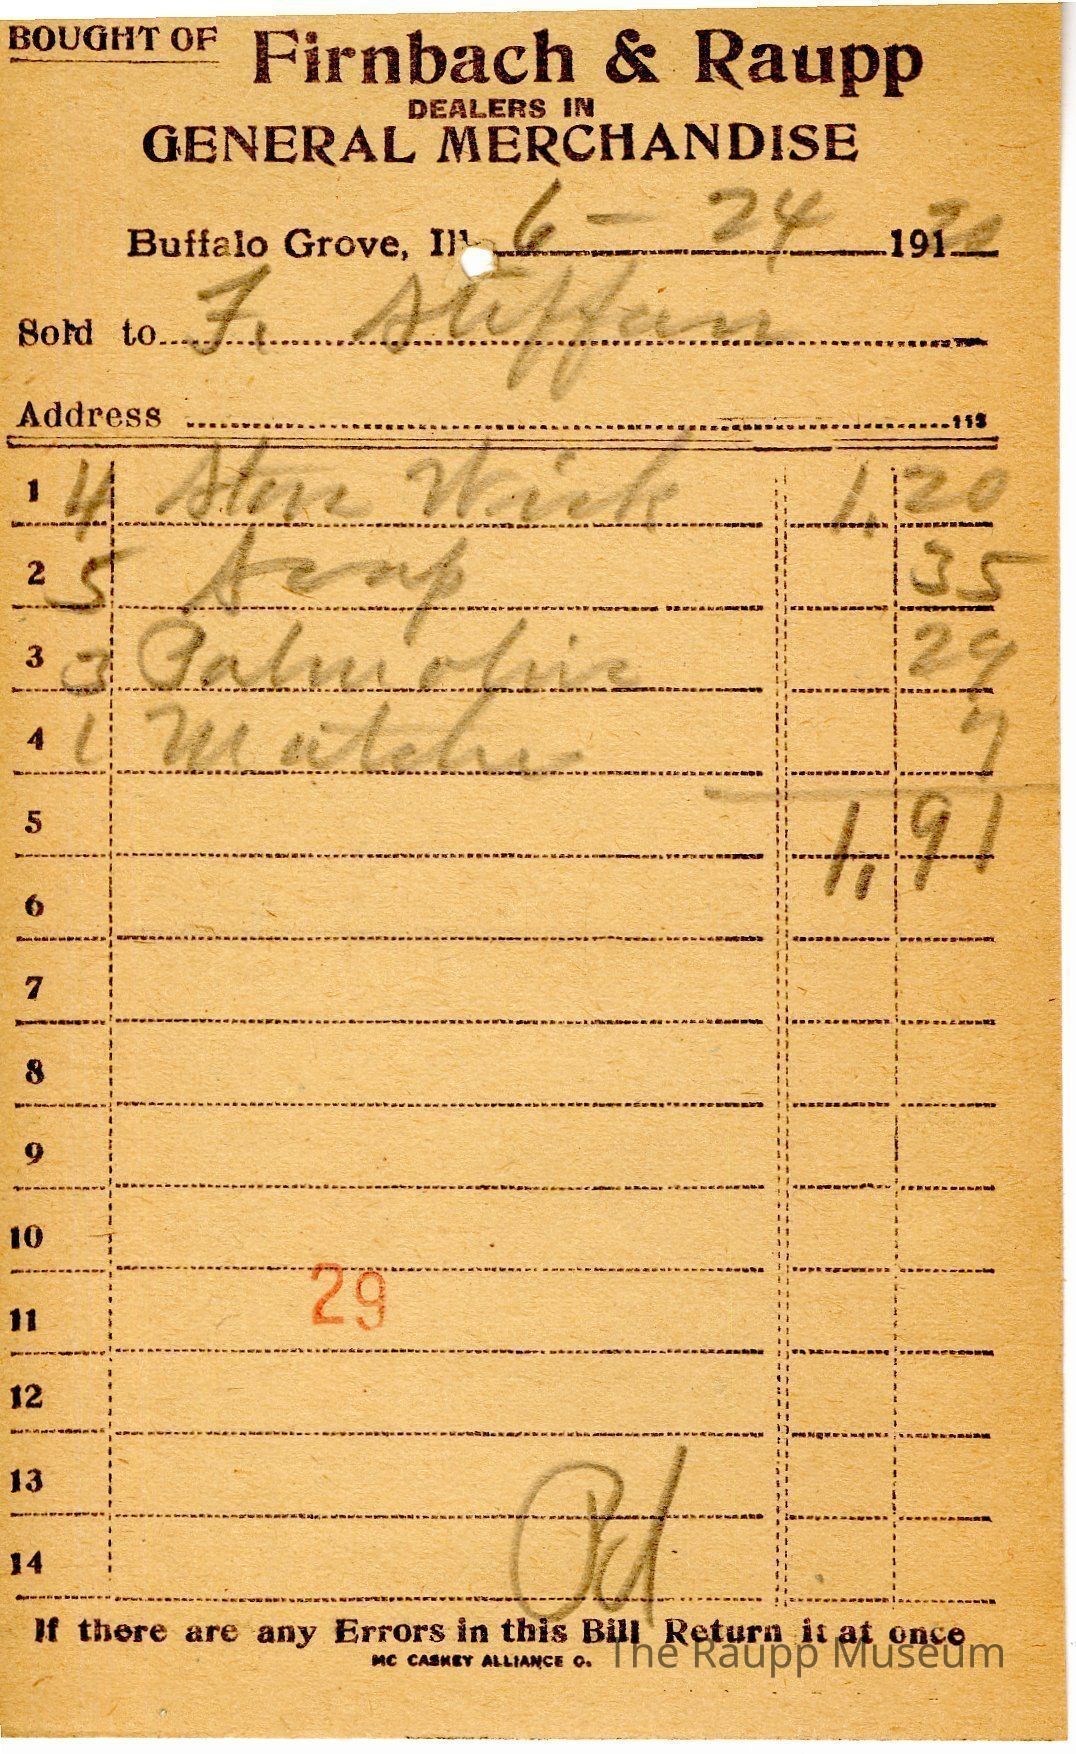 BOUGHT OF Firnbach & Raupp
DEALERS IN
GENERAL MERCHANDISE
Buffalo Grove, Ill. 6 - 24 191 20
Sold to F. Steffen
Address 113
1 4 Stove Wick 1.20
2 5 Soap 35
3 3 Palmolive 29
4 1 Matches 7
5 1.91
6
7
8
9
10
29
11
12
13
Pd
14
If there are any Errors in this Bill Return it at once
MC CASKEY ALLIANCE O.
The Raupp Museum